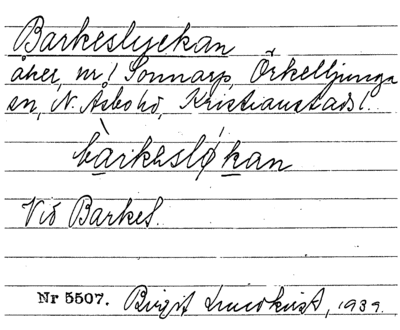 Barkeslyckan
åker, nr 1 Sonnarp, Örkelljunga
sn, N. Åsbo hd, Kristianstads l.
bàrkesløkan
Vid Barkes.
Nr 5507. Birgit Lindkvist, 1939.